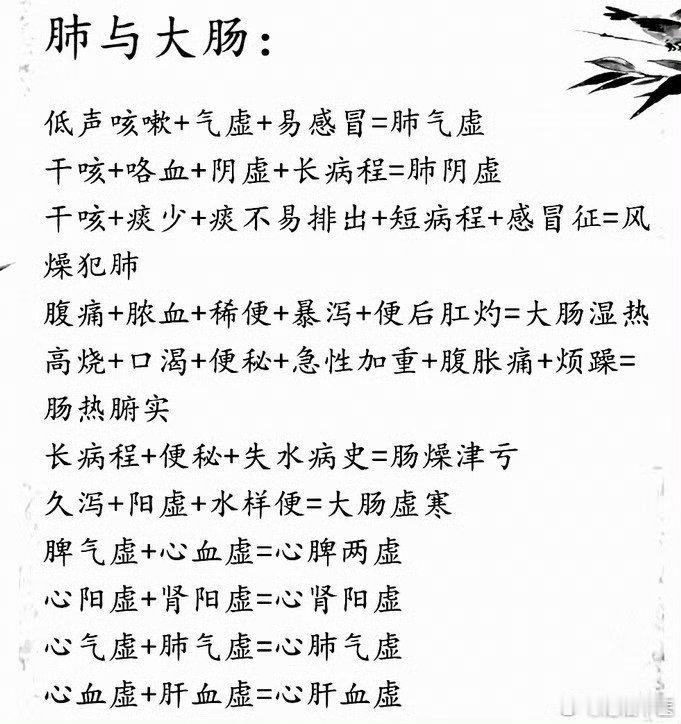 肺与大肠：
低声咳嗽+气虚+易感冒=肺气虚
干咳+咯血+阴虚+长病程=肺阴虚
干咳+痰少+痰不易排出+短病程+感冒征=风
燥犯肺
腹痛+脓血+稀便+暴泻+便后肛灼=大肠湿热
高烧+口渴+便秘+急性加重+腹胀痛+烦躁=
肠热腑实
长病程+便秘+失水病史=肠燥津亏
久泻+阳虚+水样便=大肠虚寒
脾气虚+心血虚=心脾两虚
心阳虚+肾阳虚=心肾阳虚
心气虚+肺气虚=心肺气虚
心血虚+肝血虚=心肝血虚